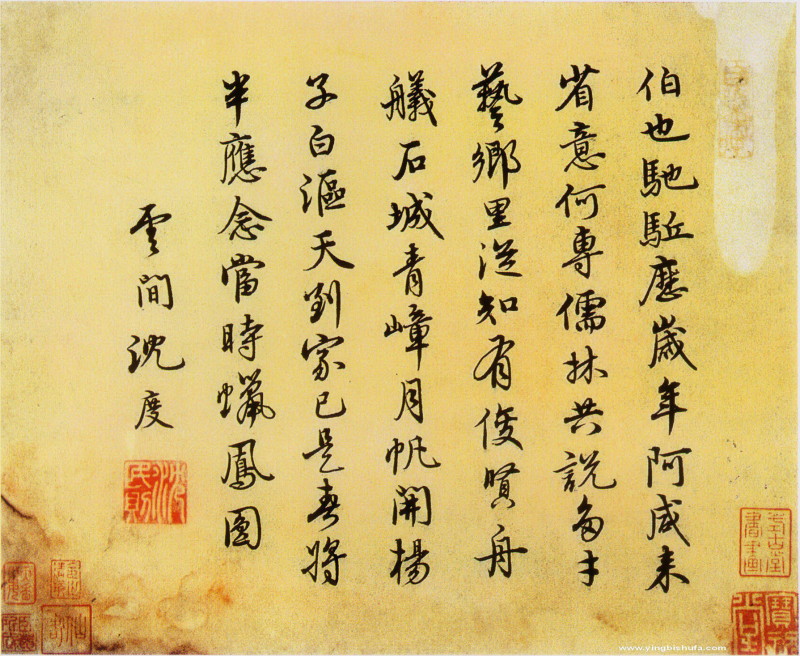 伯也馳駈歷歲年阿咸来
省意何專儒林共說多才
藝鄉里從知有俊賢舟
艤石城青嶂月帆開楊
子白漚天到家已是春將
半應念當時蠟鳳圓
雲間沈度
沈民則
www.yingbishufa.com